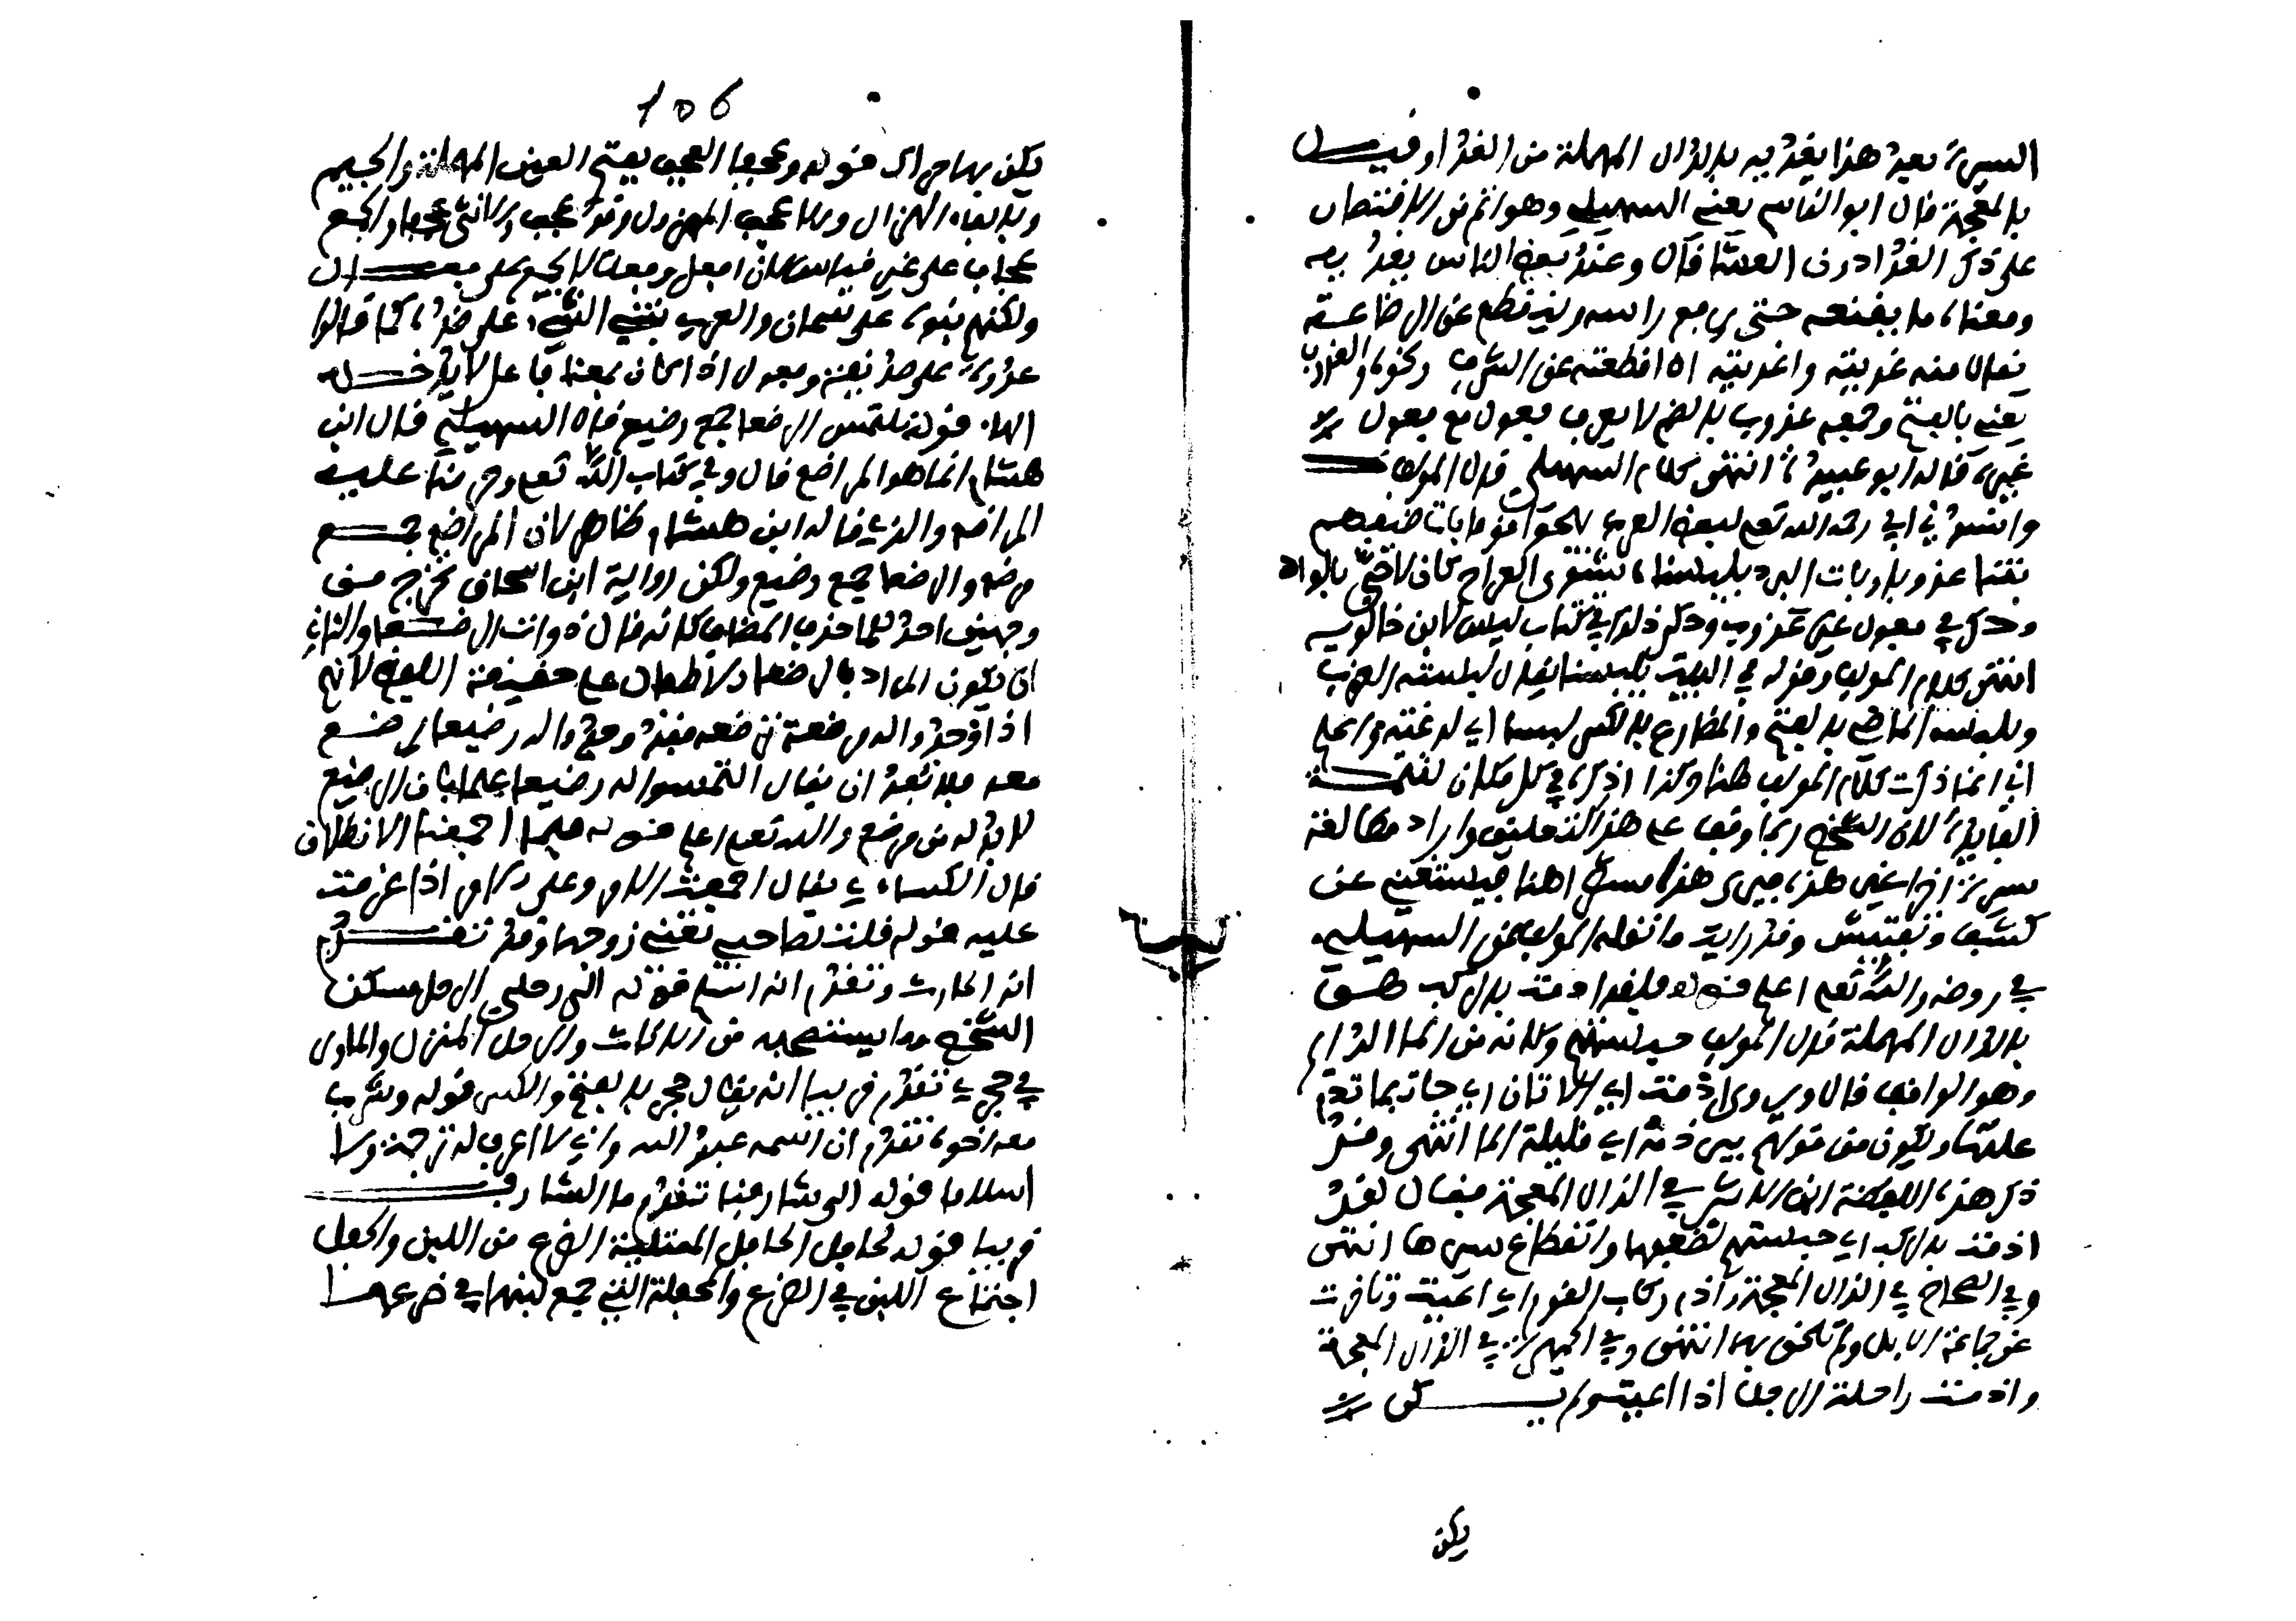 السيرة بعد هذا يغديه بالدال المهملة من الغدا وقيل
بالمعجمة قال ابو القاسم يعني السهيلي وهو اتم من الاقتصار
على ذكر الغدا دون العشا قال وعند بعض الناس يعذبه
ومعناه ما يقنعه حتى يرفع راسه وينقطع عن الرضاعة
يقال منه عذبته واعذبته اذا قطعته عن الشرب ونحوه والعذوب
يعني بالفتح وجمعه عذوب بالضم لا يعرف فعول جمع فعول
غيره قاله ابو عبيد انتهى كلام السهيلي قال المولف
وانشدني ابي رحمه الله تعلى لبعض العرب
بتنا عذوبا وبات البق يلسبنا نشوي القراح كان لا حي بالواد
وذكر في فعول غير عذوب وذكر ذلك في كتاب ليس لابن خالويه
انتهى كلام المولف وقوله في البيت يلسبنا يقال لسبته العقرب
الماضي بالفتح والمضارع بالكسر لسبا اي لدغته واعلم
اني انما ذكرت كلام المولف هنا وكذا اذكره في كل مكان لتتمة
الفايدة لان الشخص ربما وقف على هذا التعليق واراد مطالعة
سيرة اخرا غير هذه فيرى هذا هنا فيستغني عن
كشف وتفتيش وقد رايت ما نقله المولف عن السهيلي
في روضه والله تعلى اعلم قوله فلقد ادمت بالركب هو
بالدال المهملة قال المولف حبستهم وكانه من الما الدايم
وهو الواقف قال ويروى اذمت اي الاتان اي جات بما تذم
عليه او يكون من قولهم بير ذمة اي قليلة الما انتهى وقد
ذكر هذه اللفظة ابن الاثير في الذال المعجمة فقال لقد
اذمت بالركب اي حبستهم لضعفها وانقطاع سيرها انتهى
وفي الصحاح في الذال المعجمة واذمت ركاب القوم اي اعيت وتاخرت
عن جماعة الابل ولم تلحق بها انتهى وفي الجمهرة في الذال المعجمة
واذمت راحلة الرجل اذا اعيت ولم يكن
يكن
106
يكن بها حراك قوله وعجفا العجف بفتح العين المهملة والجيم
وبالفاء الهزال والاعجف المهزول وقد عجف والانثى عجفا والجمع
عجاف على غير قياس لان افعل وفعلا لا يجمع على فعال
ولكنهم بنوه على سمان والعرب تبني الشيء على ضده كما قالوا
عدوة على صديقة وفعول اذا كان بمعنى فاعل لا تدخله
الهاء قوله نلتمس الرضعا جمع رضيع قال السهيلي قال ابن
هشام انما هو المراضع قال وفي كتاب الله تعلى وحرمنا عليه
المراضع والذي قاله ابن هشام ظاهر لان المراضع جمع
مرضع والرضعا جمع رضيع ولكن رواية ابن اسحاق تخرج من
وجهين احدهما حذف المضاف كانه قال ذوات الرضعا والثاني
ان يكون المراد بالرضعا الاطفال على حقيقة اللفظ لانهم
اذا وجدوا له مرضعة ترضعه فقد وجدوا له رضيعا يرضع
معه فلا يبعد ان يقال التمسوا له رضيعا علما بان الرضيع
لا بد له من مرضع والله تعلى اعلم قوله فلما اجمعنا الانطلاق
قال الكساءي يقال اجمعت الامر وعلى الامر اذا عزمت
عليه قوله قلت لصاحبي تعني زوجها وقد تقدم
انه الحارث وتقدم انه اسلم قوله الى رحلي الرحل مسكن
الشخص وما يستصحبه من الاثاث والرحل المنزل والماوى
في حجري تقدم قريبا انه يقال حجر بالفتح والكسر قوله وشرب
معه اخوه تقدم ان اسمه عبد الله واني لا اعرف له ترجمة ولا
اسلاما قوله الى شارفنا تقدم ما الشارف
قريبا قوله لحافل الحافل الممتلية الضرع من اللبن والحفل
اجتماع اللبن في الضرع والمحفلة التي جمع لبنها في ضرعها